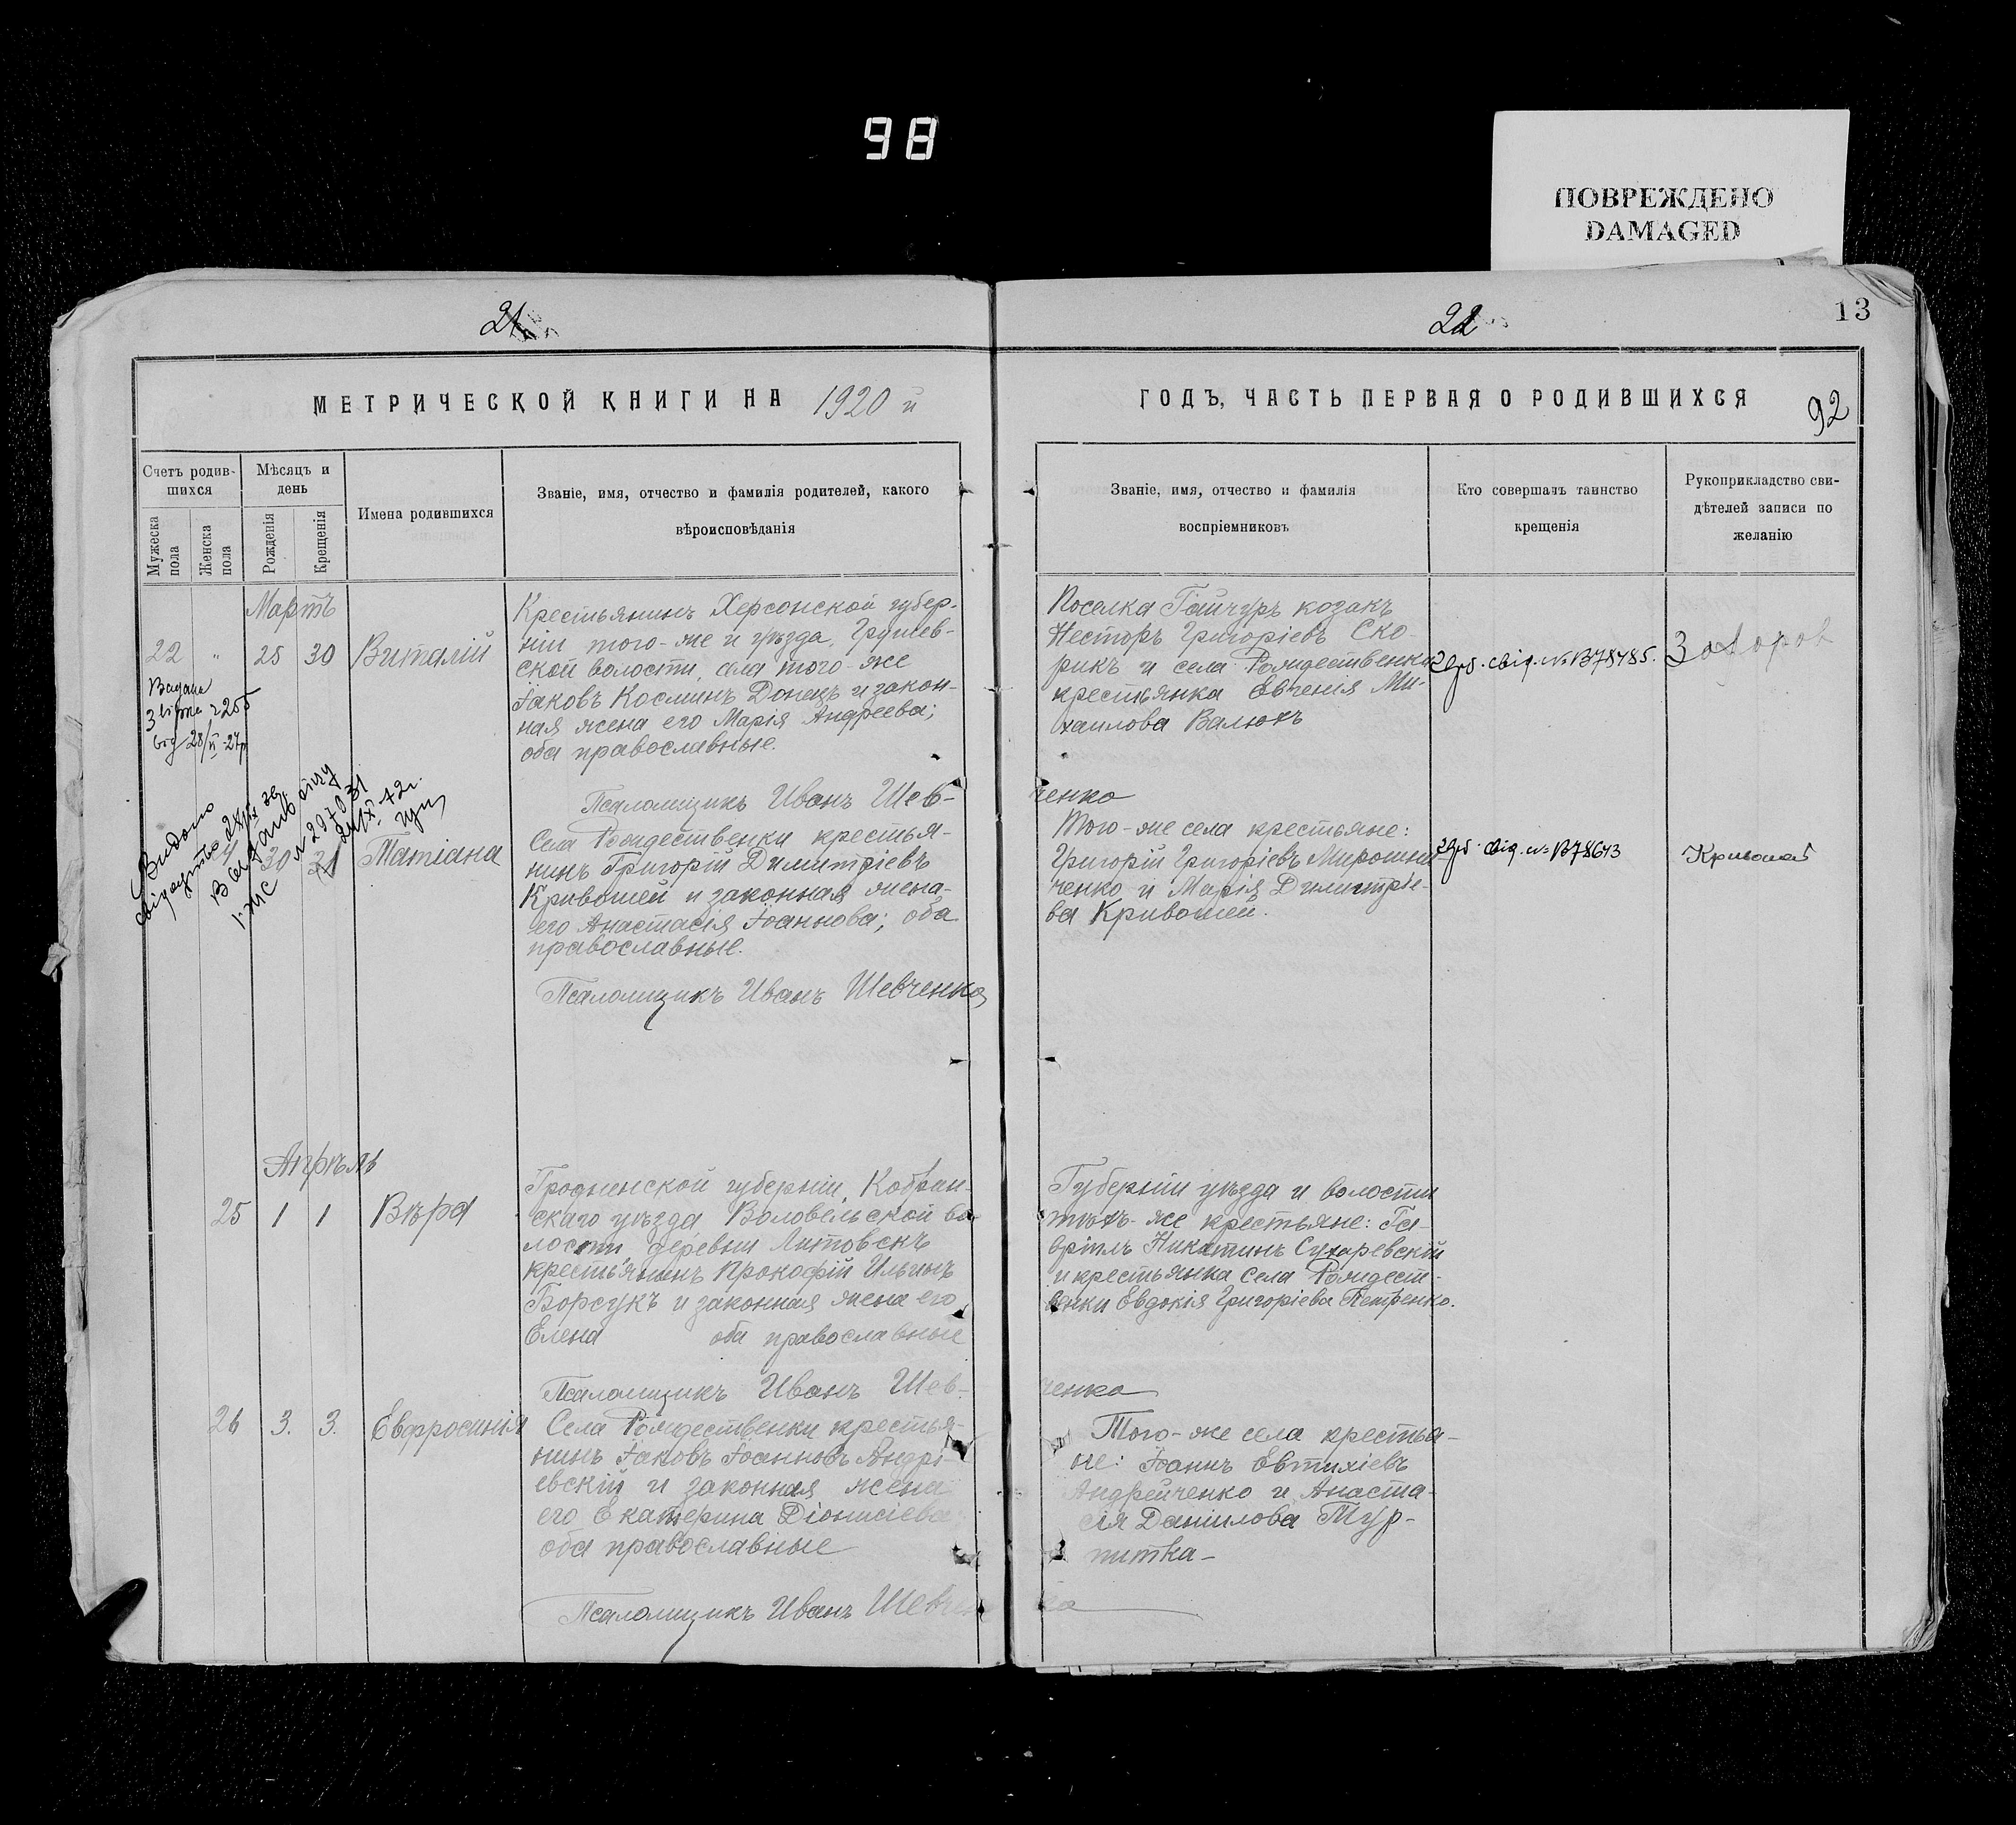 98
ПОВРЕЖДЕНО
DAMAGED
21
22
13
МЕТРИЧЕСКОЙ КНИГИ НА 1920 й
ГОДЪ, ЧАСТЬ ПЕРВАЯ О РОДИВШИХСЯ
92
Счетъ родив-
шихся
Мужеска
пола
Женска
пола
Мѣсяцъ и
день
Рожденія
Крещенія
Имена родившихся
Званіе, имя, отчество и фамилія родителей, какого
вѣроисповѣданія
Званіе, имя, отчество и фамилія
воспріемниковъ
Кто совершалъ таинство
крещенія
Рукоприкладство сви-
дѣтелей записи по
желанію
Мартъ
22 " 25 30 Виталій
Видана
від 28/II-27р
Крестьянинъ Херсонской губер-
ніи того-же и уѣзда, Грушев-
ской волости, села того-же
Іаковъ Косминъ Донецъ и закон-
ная жена его Марія Андреева;
оба православные.
Псаломщикъ Иванъ Шев-
ченко
Поселка Гайчуръ козакъ
Несторъ Григоріевъ Ско-
рикъ и села Рождественки
крестьянка Евгенія Ми-
хаилова Валюкъ
свід. № В78785.
Видано
свідоцтво
№ 297031
30 31 Татіана
Села Рождественки крестья-
нинъ Григорій Димитріевъ
Кривошей и законная жена
его Анастасія Іоаннова; оба
православные.
Псаломщикъ Иванъ Шевченко
Того-же села крестьяне:
Григорій Григоріевъ Мирошни-
ченко и Марія Димитріе-
ва Кривошей.
свід. № В78643
Апрѣль
25 1 1 Вѣра
Гродненской губерніи, Кобрин-
скаго уѣзда Воловельской во-
лости, деревни Литовскъ
крестьянинъ Прокофій Ильинъ
Борсукъ и законная жена его
Елена оба православные
Псаломщикъ Иванъ Шев-
ченко
Губерніи уѣзда и волости
тѣхъ-же крестьяне: Га-
вріилъ Никитинъ Сухаревскій
и крестьянка села Рождест-
венки Евдокія Григоріева Петренко.
26 3. 3. Евфросинія
Села Рождественки крестья-
нинъ Іаковъ Іоанновъ Андрі-
евскій и законная жена
его Екатерина Діонисіева
оба православные
Псаломщикъ Иванъ Шевчен
ко
Того-же села крестья-
не: Іоаннъ Евтихіевъ
Андрейченко и Анаста-
сія Даніилова Тур-
питка-